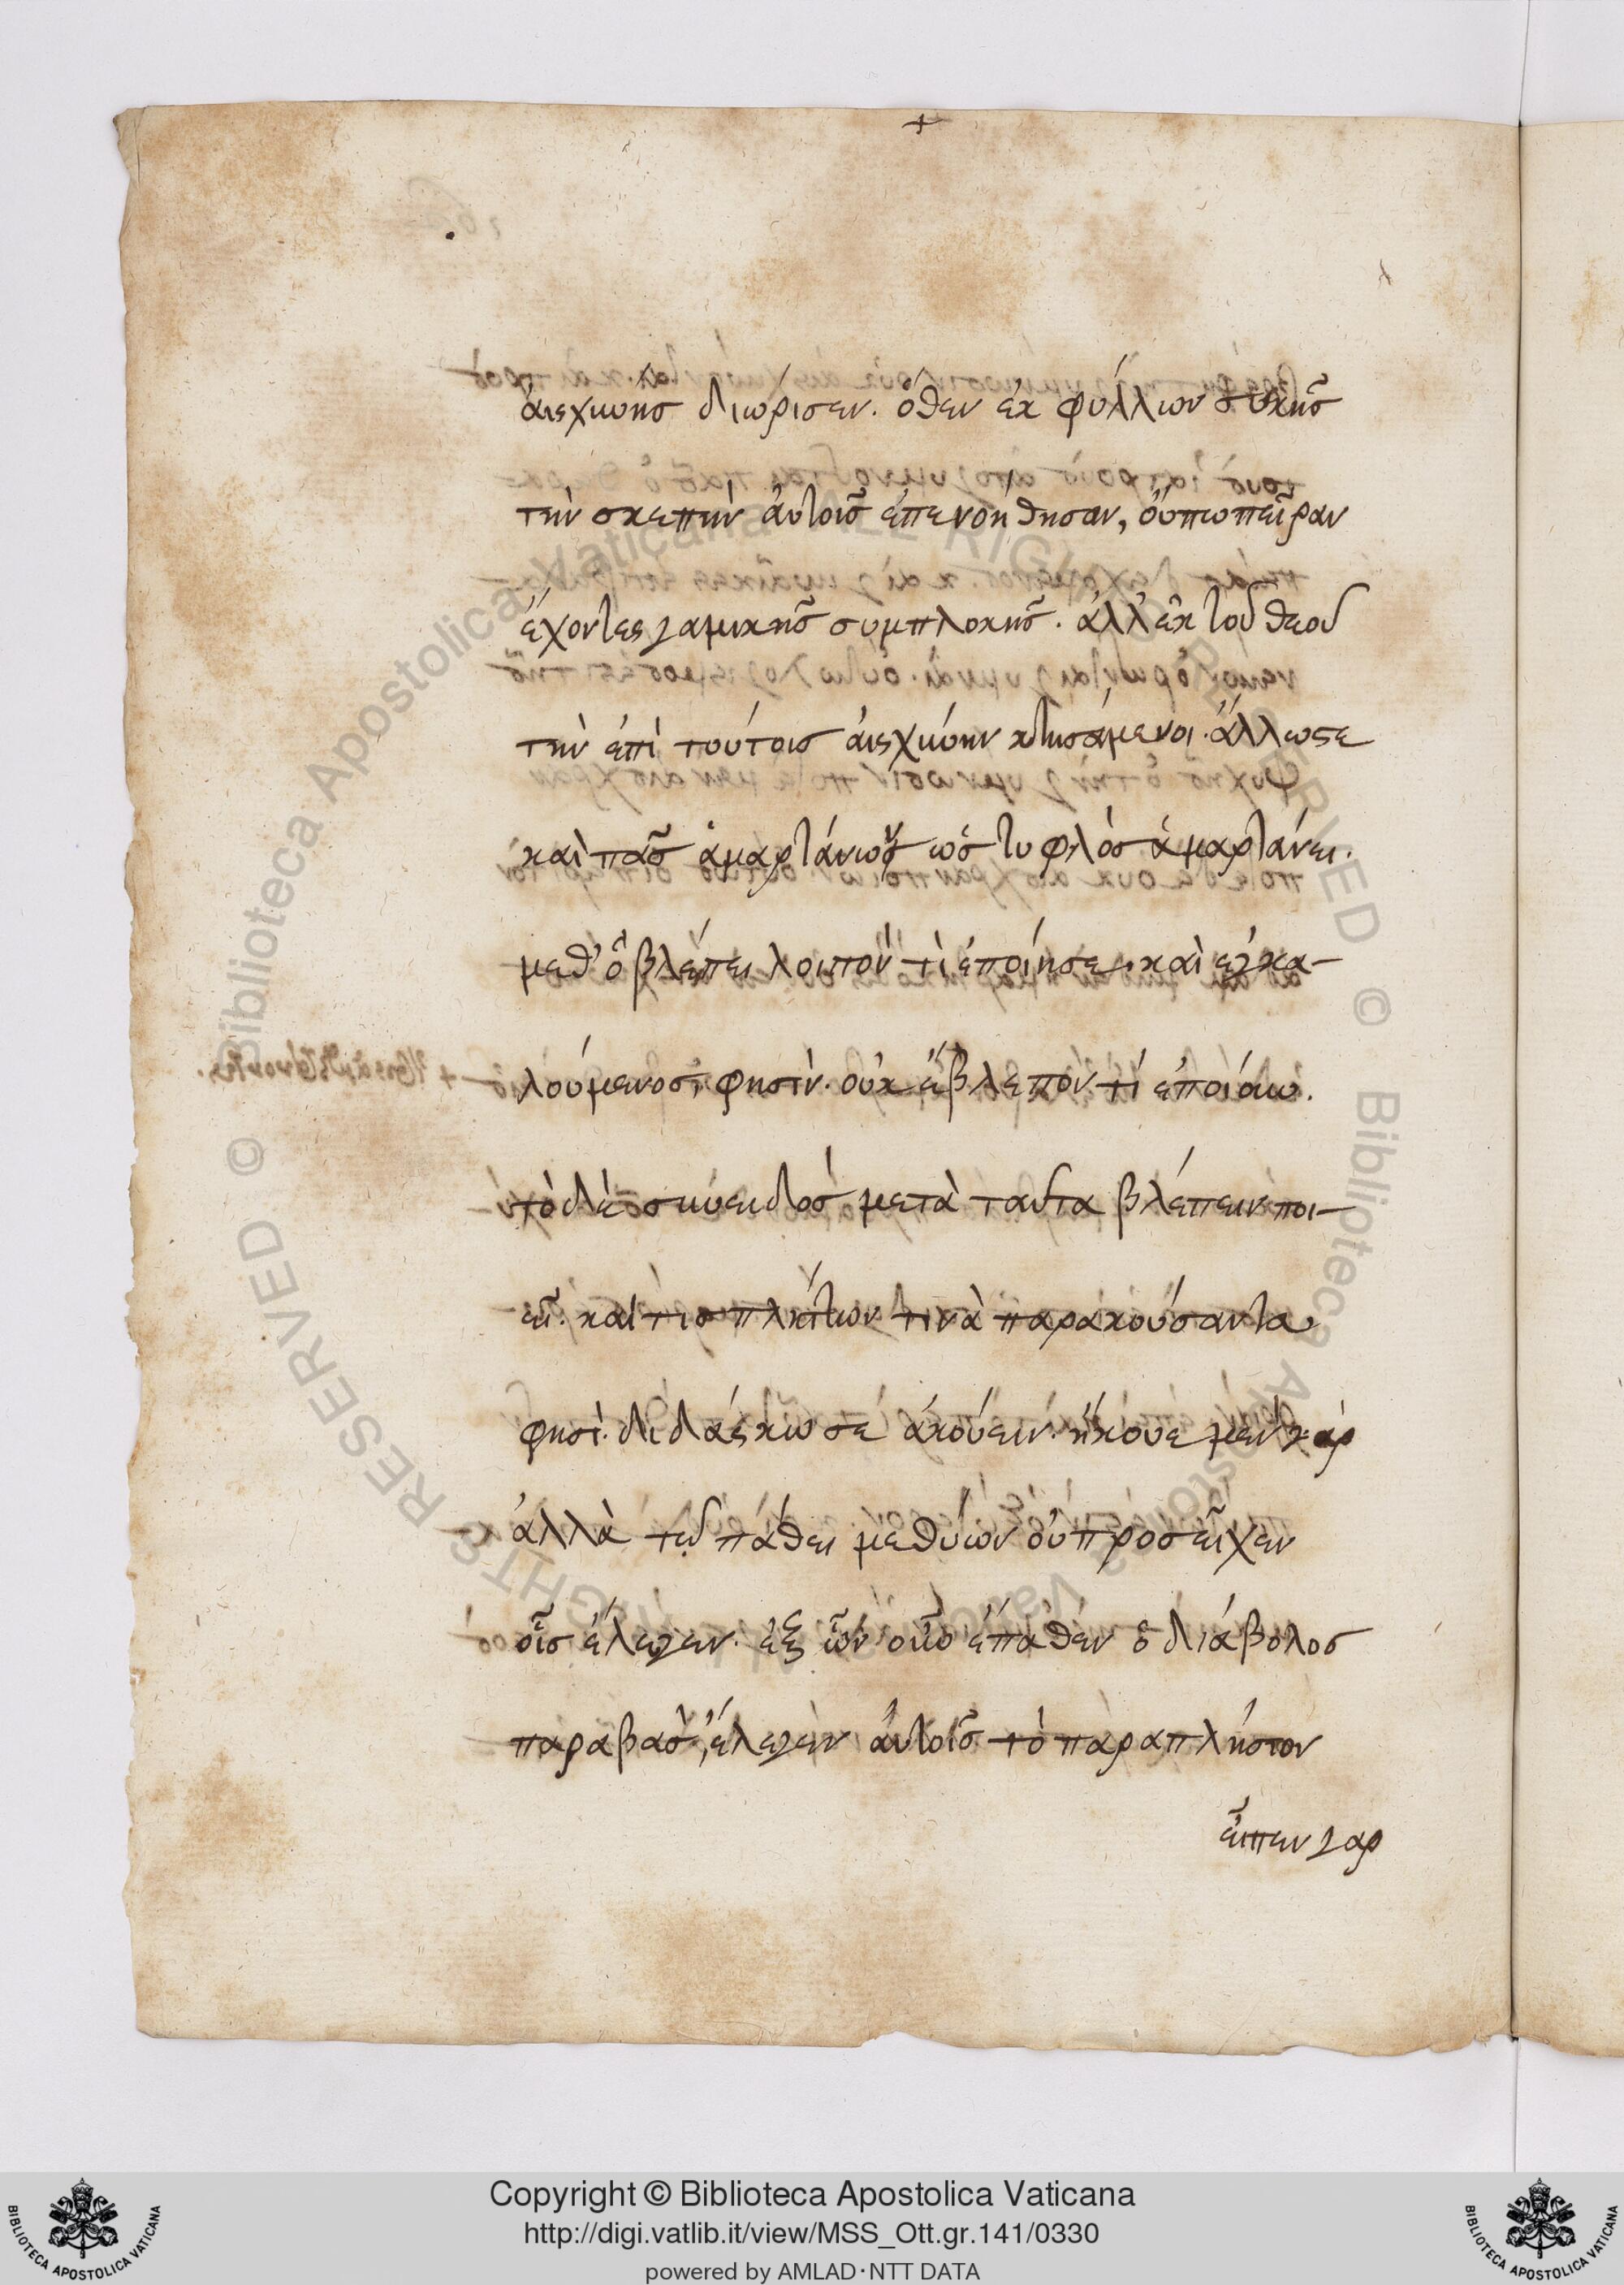 αἰσχύνης διώρισεν. ὅθεν ἐκ φύλλων συκῆς
τὴν σκεπὴν αὐτοῖς ἐπενοήθησαν, οὔπω πεῖραν
ἔχοντες γαμικῆς συμπλοκῆς. ἀλλ' ἐκ τοῦ θεοῦ
τὴν ἐπὶ τούτοις αἰσχύνην κτησάμενοι. ἄλλως τε
καὶ πᾶς ἁμαρτάνων ὡς τυφλὸς ἁμαρτάνει.
μεθ' ὃ βλέπει λοιπὸν τί ἐποίησε, καὶ ἐγκα-
λούμενος, φησίν. οὐκ ἔβλεπον τί ἐποίουν.
τὸ δὲ συνειδὸς μετὰ ταῦτα βλέπειν ποι-
εῖ. καί τις πλήττων τινὰ παρακούσαντα
φησί. διδάσκω σε ἀκούειν. ἤκουε μὲν γὰρ
ἀλλὰ τῷ πάθει μεθύων οὐ προσεῖχεν
οἷς ἔλεγεν. ἐξ ὧν οὖν ἔπαθεν ὁ διάβολος
παραβὰς, ἔλεγεν αὐτοῖς τὸ παραπλήσιον
εἶπεν γαρ
Copyright © Biblioteca Apostolica Vaticana
http://digi.vatlib.it/view/MSS_Ott.gr.141/0330
powered by AMLAD·NTT DATA